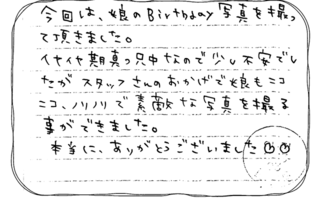 今回は、娘のBirthday写真を撮っ
て頂きました。
イヤイヤ期真っ只中なので少し不安でし
たがスタッフさんのおかげで娘もニコ
ニコ、ノリノリで素敵な写真を撮る
事ができました。
本当に、ありがとうございました